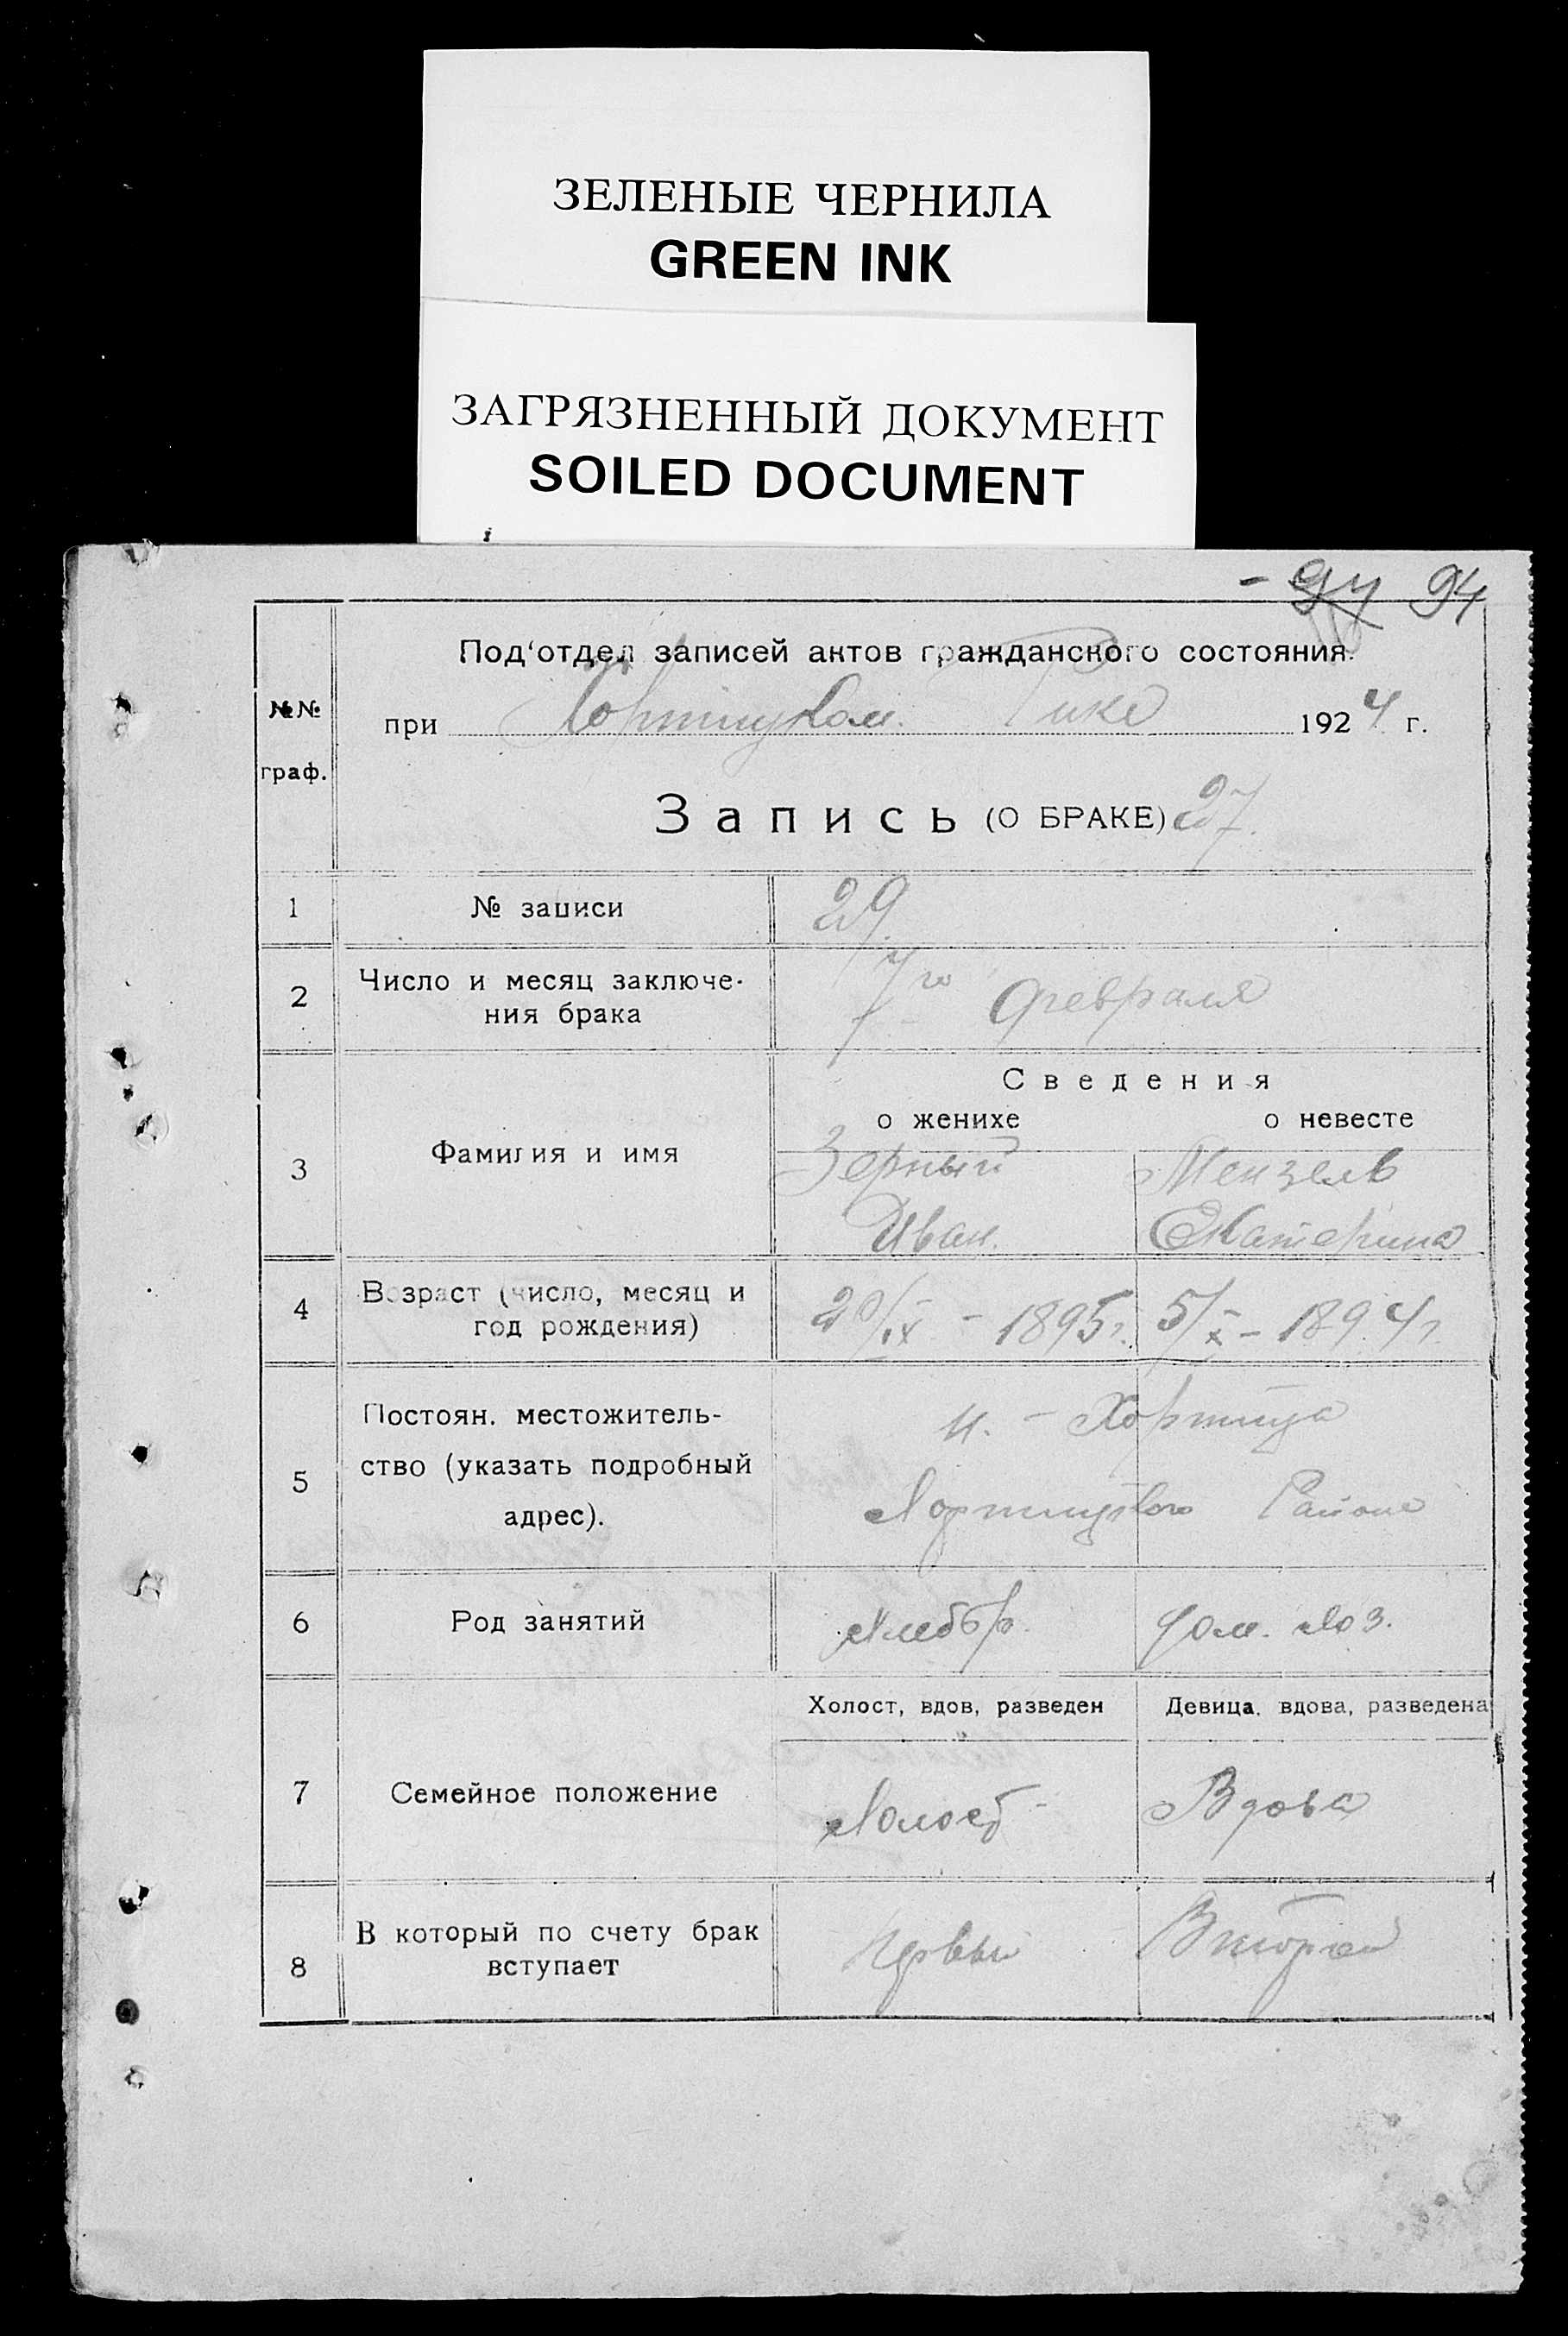 ЗЕЛЕНЫЕ ЧЕРНИЛА
GREEN INK
ЗАГРЯЗНЕННЫЙ ДОКУМЕНТ
SOILED DOCUMENT
94
№№ граф.
Под‘отдел записей актов гражданского состояния.
при Хортицком Рике 1924 г.
Запись (О БРАКЕ) 27.
1 № записи 29
2 Число и месяц заключе-
ния брака Февраля
Сведения
о женихе о невесте
3 Фамилия и имя Зерный Мензель
Иван Екатерина
4 Возраст (число, месяц и
год рождения) 20/IX - 1895г. 5/X - 1894г.
5 Постоян. местожитель-
ство (указать подробный
адрес).
Хортица
Хортицкого Района
6 Род занятий Хлебор. дом. хоз.
Холост, вдов, разведен Девица, вдова, разведена
7 Семейное положение Холост Вдова
8 В который по счету брак
вступает Первый Второй